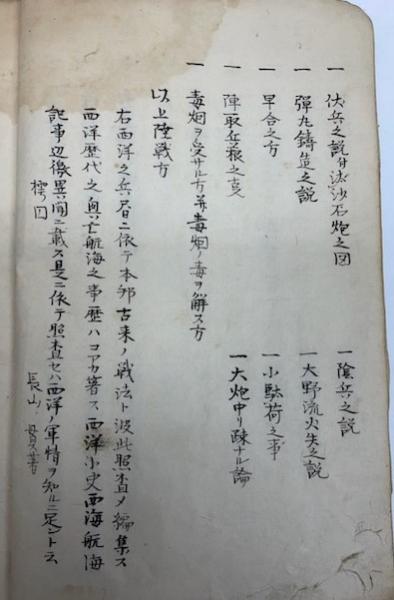 一 伏兵之説付法沙石炮之図 一 陰兵之説
一 弾丸鋳造之説 一 大野流火矢之説
一 早合之方 一 小駄荷之事
一 陣取兵糧之支 一 大炮中リ疎ナル論
一 毒烟ヲ受サル方并毒烟ノ毒ヲ解ス方
以上陸戦方
右西洋之兵書ニ依テ本邦古来ノ戦法ト彼此照査メ編集ス
西洋歴代之興亡航海之事歴ハコアカ著ス西洋小史西海航海
記事辺徴異聞ニ載ス是ニ依テ照査セハ西洋ノ軍情ヲ知ルニ足ント云
長山 貫著